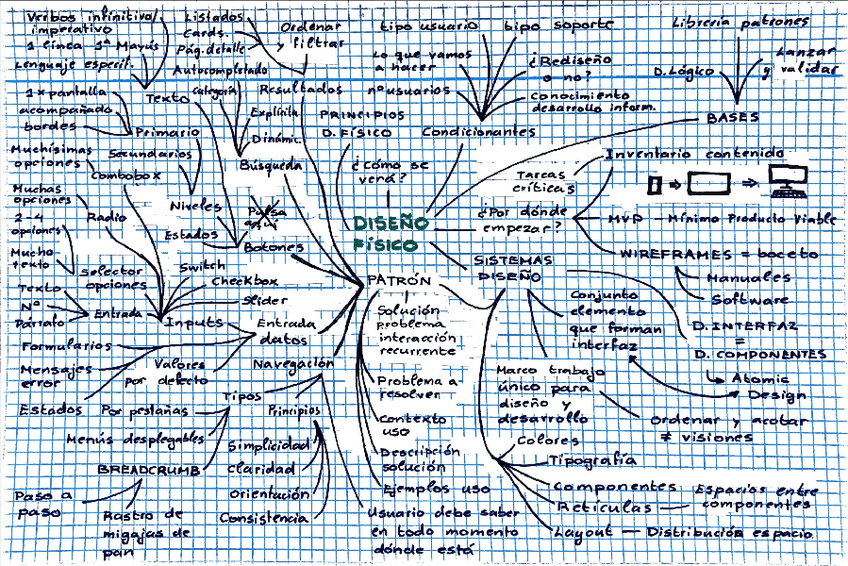 Verbos infinitivo/
imperativo
1 línea 1ª Mayús
Lenguaje especif.
Texto
Listados
Cards.
Pág. detalle
Ordenar
y filtrar
Autocompletado
Categoría
Resultados
Explícita
Dinámic.
Búsqueda
1 x pantalla
acompañado
bordes
Primario
Secundarios
Niveles
Estados
Pulsa
aquí
Botones
Muchísimas
opciones
Combobox
Muchas
opciones
Radio
2-4
opciones
Mucho
texto
Selector
opciones
Switch
Checkbox
Slider
Texto
Nº
Párrafo
Entrada
Inputs
Entrada
datos
Formularios
Mensajes
error
Valores
por defecto
Estados
Navegación
Tipos
Por pestañas
Menús desplegables
BREADCRUMB
Paso a
paso
Rastro de
migajas de
pan
Principios
Simplicidad
Claridad
Orientación
Consistencia
Usuario debe saber
en todo momento
dónde está
PRINCIPIOS
D. FÍSICO
¿Cómo se
verá?
DISEÑO
FÍSICO
PATRÓN
Solución
Problema
interacción
recurrente
Problema a
resolver
Contexto
uso
Descripción
solución
Ejemplos uso
tipo usuario
tipo soporte
Lo que vamos
a hacer
nº usuarios
¿Rediseño
o no?
Conocimiento
desarrollo inform.
Condicionantes
Librería patrones
D. Lógico
Lanzar
y validar
BASES
¿Por dónde
empezar?
Tareas
críticas
Inventario contenido
MVP — Mínimo Producto Viable
WIREFRAMES = boceto
Manuales
Software
SISTEMAS
DISEÑO
Conjunto
elemento
que forman
interfaz
D. INTERFAZ
=
D. COMPONENTES
Atomic
Design
Marco trabajo
único para
diseño y
desarrollo
Ordenar y acotar
≠ visiones
Colores
Tipografía
Componentes
Retículas — Espacios entre
componentes
Layout — Distribución espacio